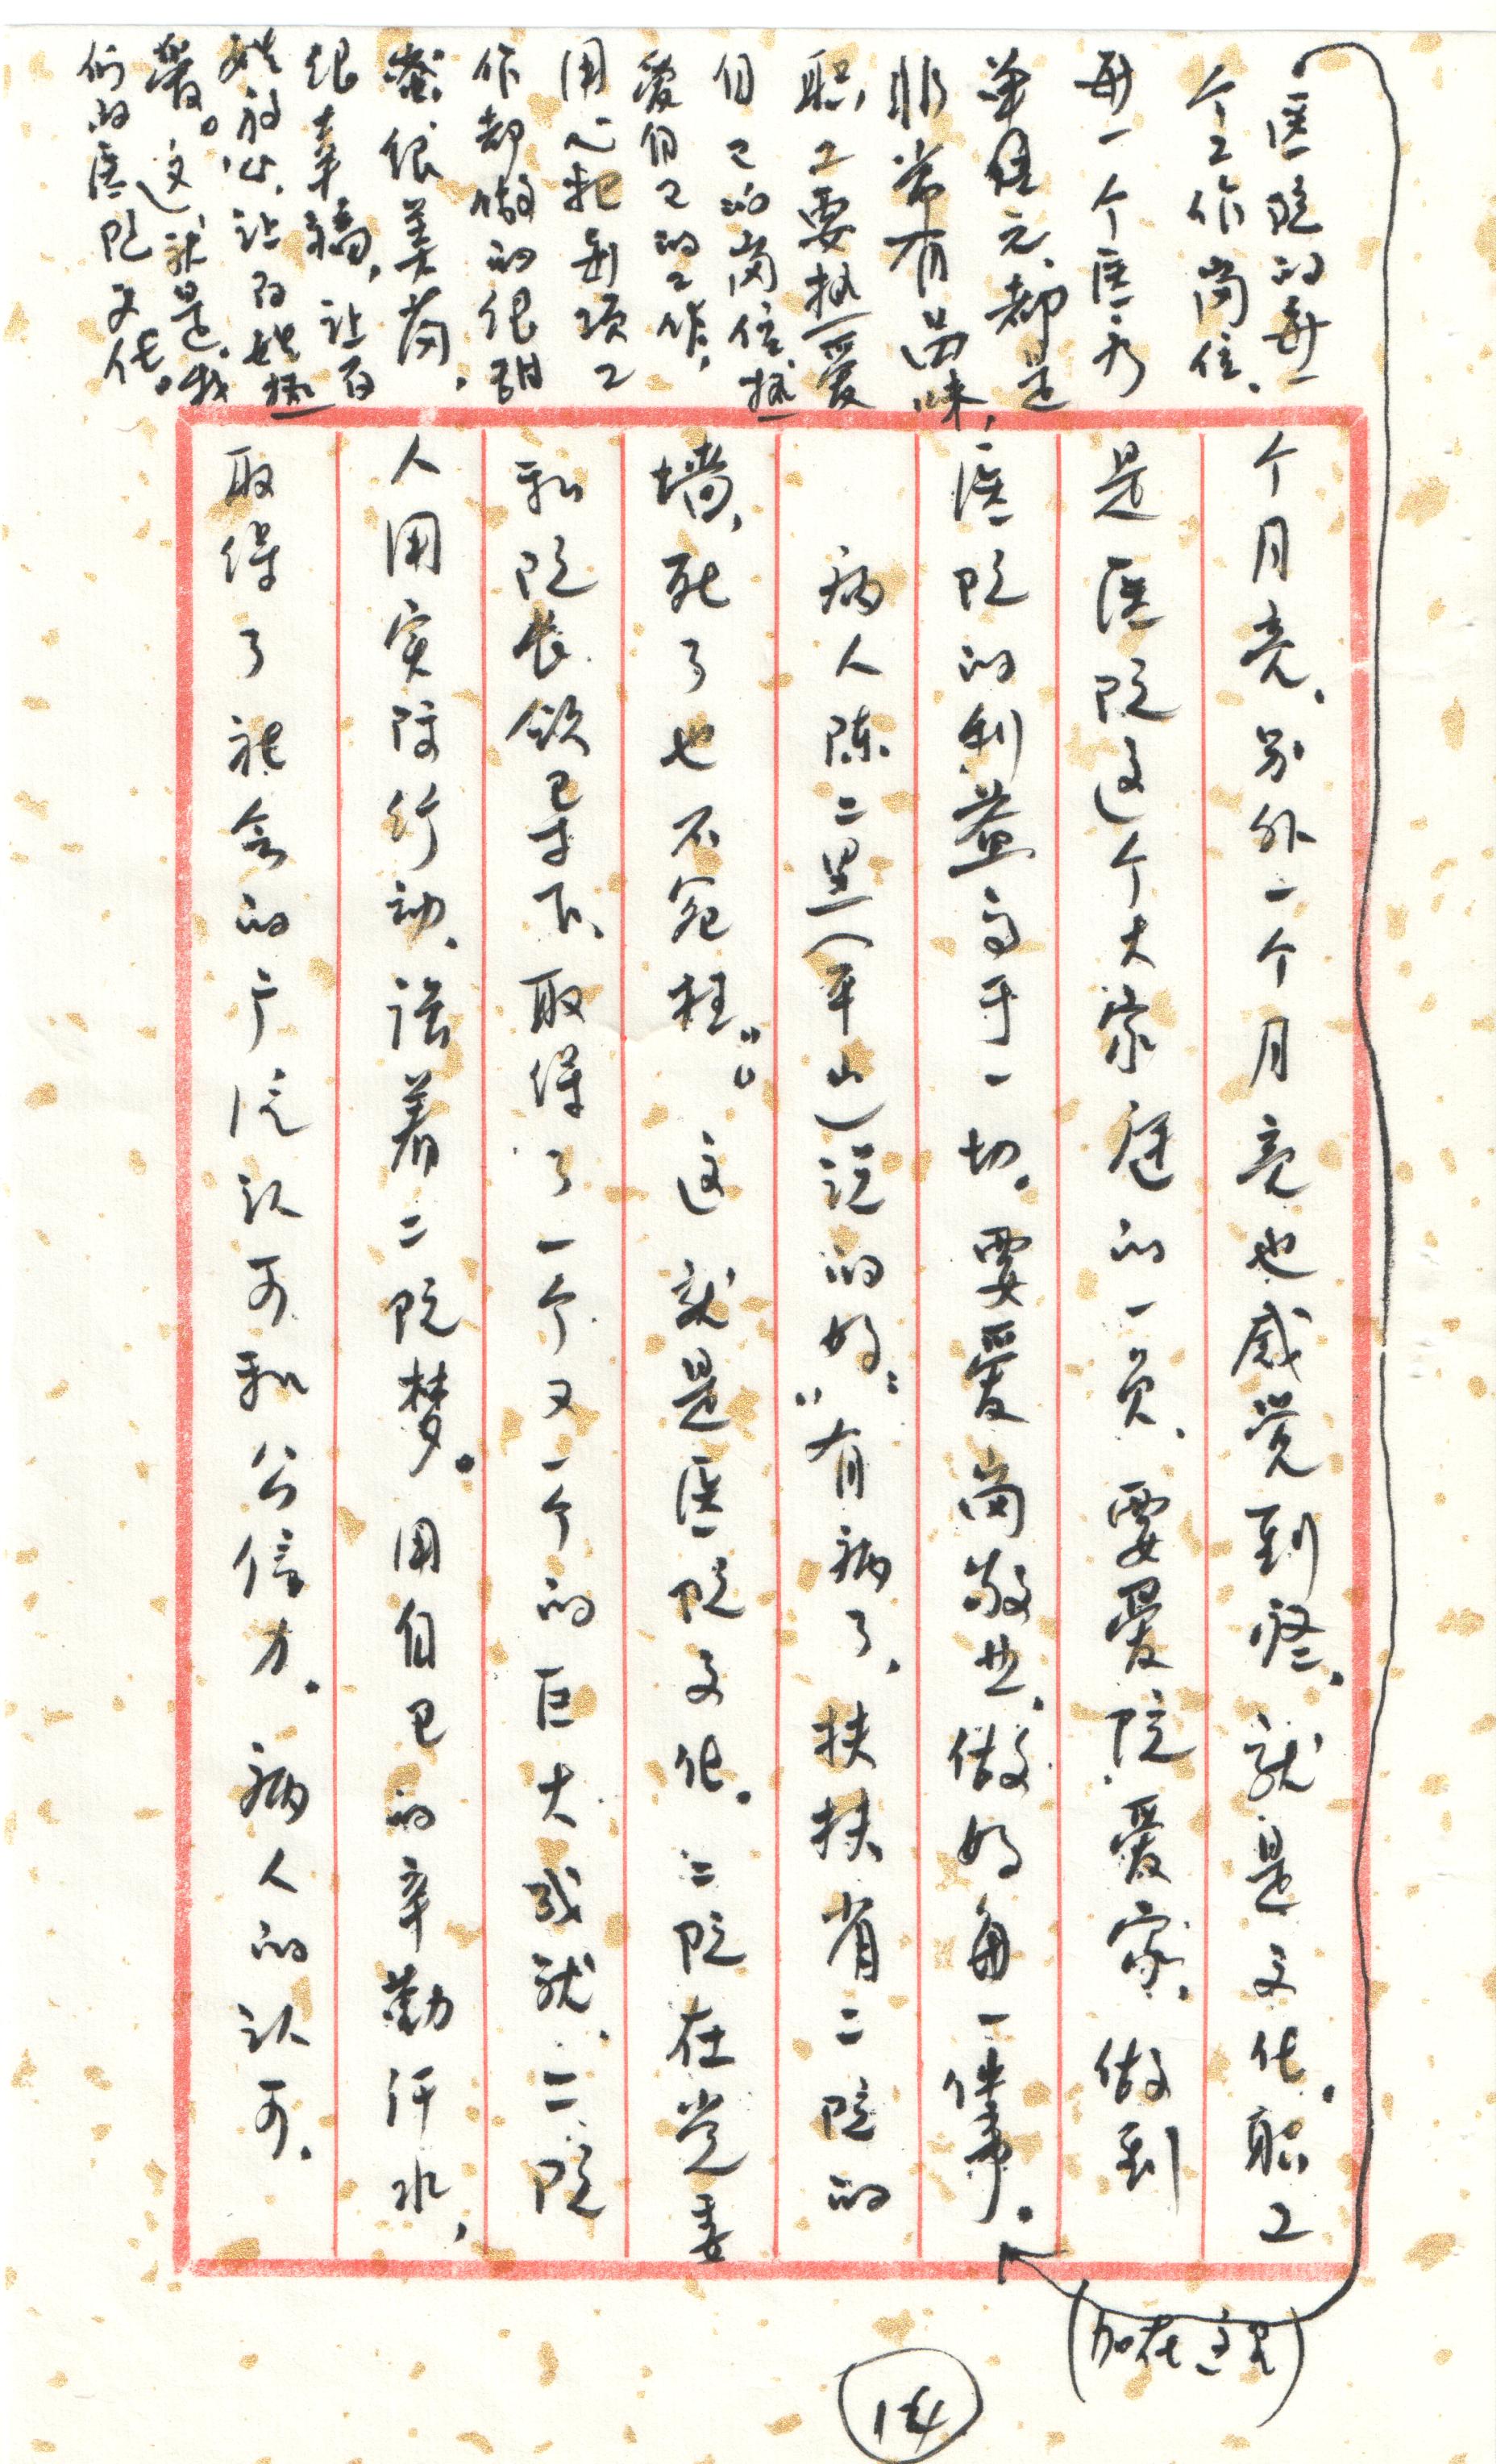 医院的每一
个工作岗位、
每一个医疗
单元、都是
非常有品味，
职工要热爱
自己的岗位、热
爱自己的工作，
用心把每项工
作都做的很甜
蜜、很美满、
很幸福，让百
姓放心、让百姓热
爱。这就是我
们的医院文化。
个月亮、另外一个月亮也感觉到疼、就是文化。职工
是医院这个大家庭的一员、要爱院爱家、做到
医院的利益高于一切。要爱岗敬业、做好每一件事。
病人陈二黑（平山）说的好：“有病了、扶扶省二院的
墙、死了也不冤枉。”。这就是医院文化。二院在党委
和院长领导下、取得了一个又一个的巨大成就、二院
人用实际行动、诠着二院梦。用自己的辛勤汗水，
取得了社会的广泛认可和公信力。病人的认可、
（加在这里）
14